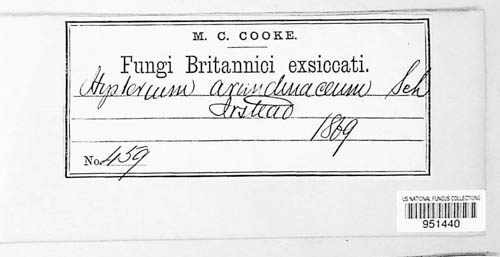 M. C. COOKE.
Fungi Britannici exsiccati.
Hysterium arundinaceum Sch
Irstead
1869
No. 459
US NATIONAL FUNGUS COLLECTIONS
951440